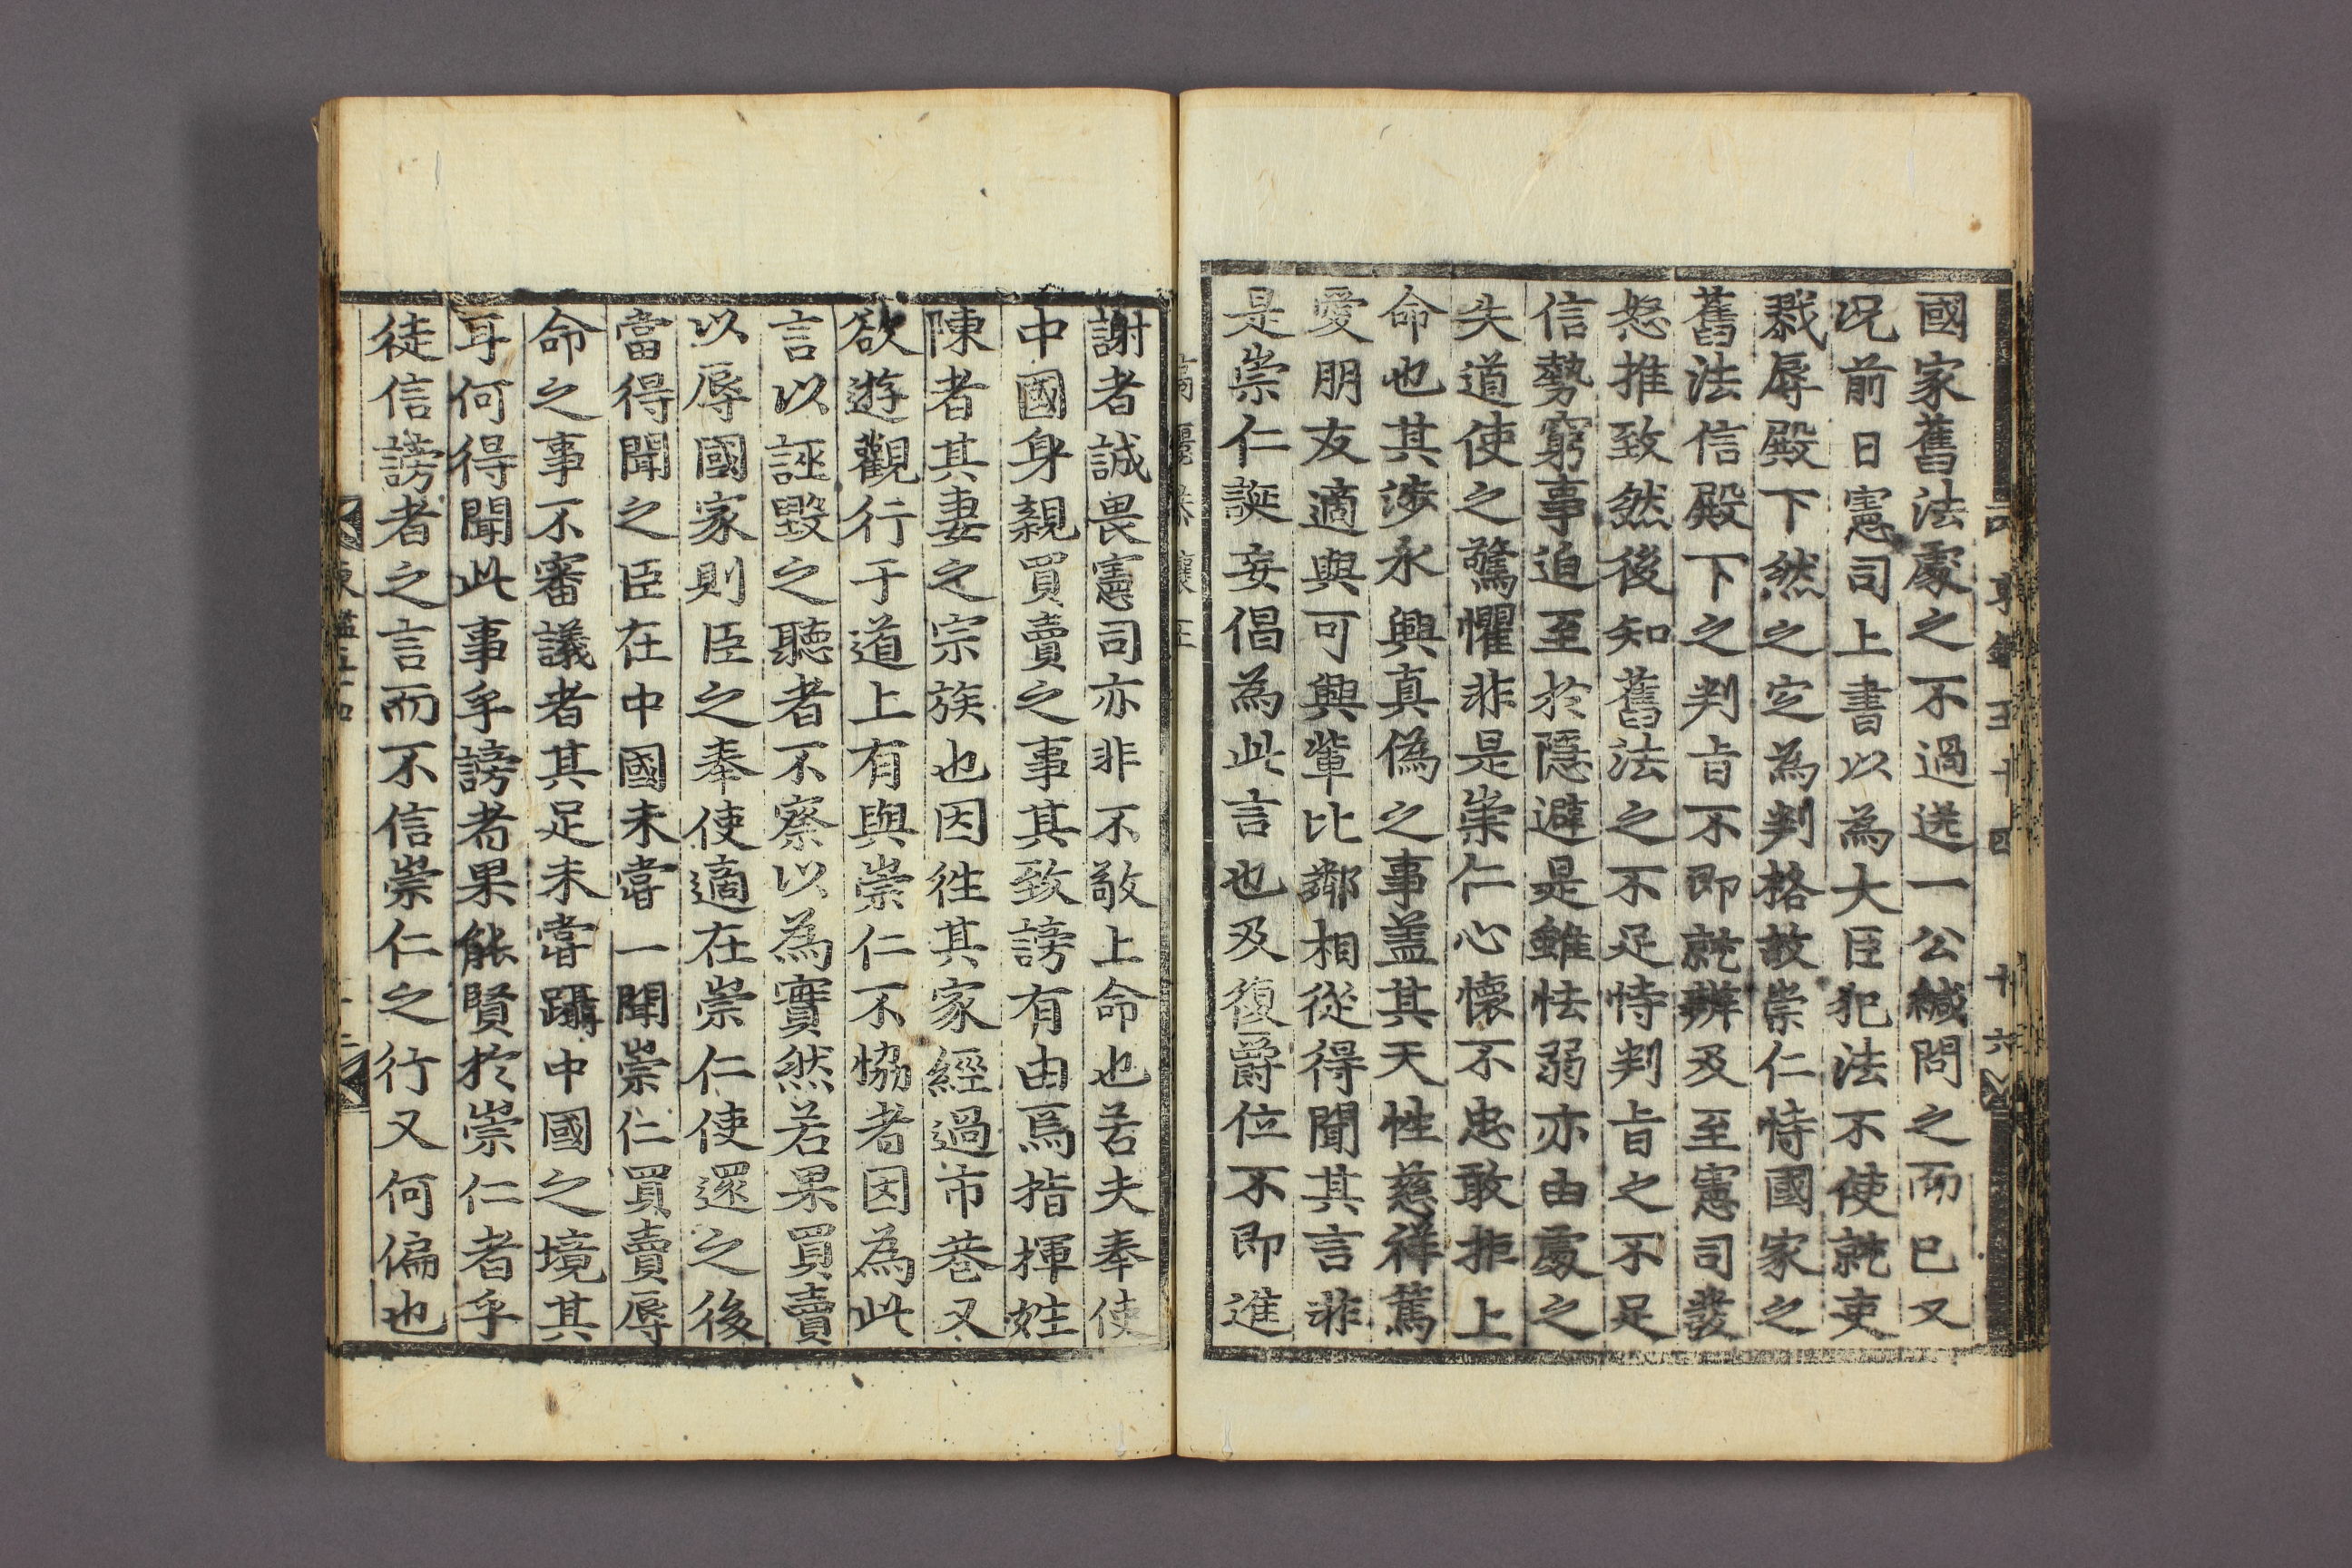 國家舊法處之不過送一公緘問之而已又
况前日憲司上書以為大臣犯法不使就吏
戮辱殿下然之定為判格故崇仁恃國家之
舊法信殿下之判旨不即就辨及至憲司發
怒推致然後知舊法之不足恃判旨之不足
信勢窮事迫至於隱避是雖怯弱亦由處之
失道使之驚懼非是崇仁心懷不忠敢拒上
命也其涉永興真偽之事盖其天性慈祥篤
愛朋友適與可興軰比鄰相從得聞其言非
是崇仁誕妄倡為此言也及復爵位不即進
謝者誠畏憲司亦非不敬上命也若夫奉使
中國身親買賣之事其致謗有由焉指揮姓
陳者其妻之宗族也因徃其家經過市巷又
欲遊觀行于道上有與崇仁不恊者因為此
言以誣毀之聽者不察以為實然若果買賣
以辱國家則臣之奉使適在崇仁使還之後
當得聞之臣在中國未甞一聞崇仁買賣辱
命之事不審議者其足未甞躡中國之境其
耳何得聞此事乎謗者果能賢於崇仁者乎
徒信謗者之言而不信崇仁之行又何偏也